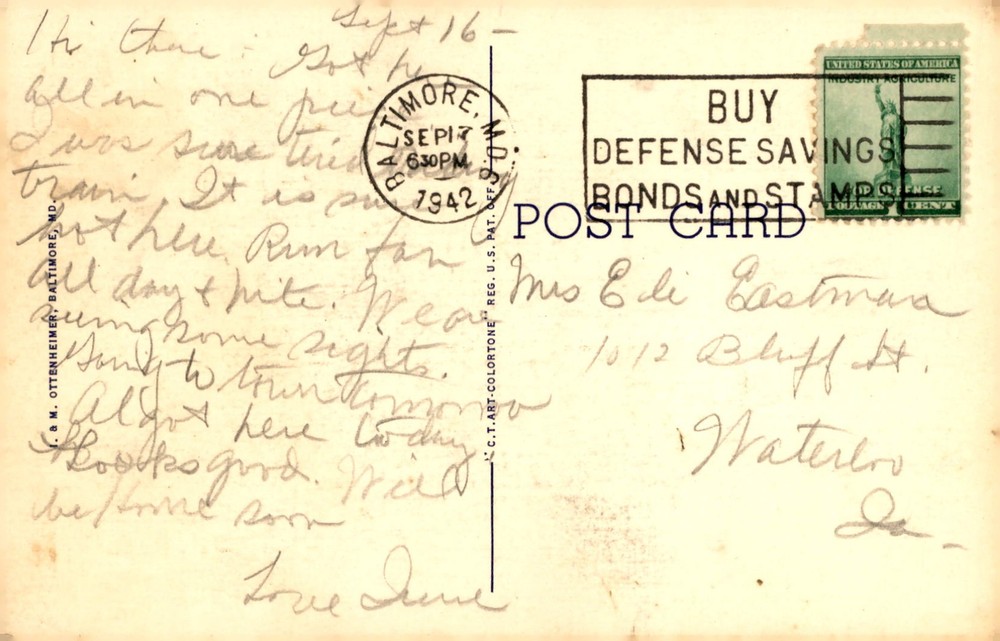 Sept 16 –
Hi there. Got he
all in one pie
I was sure tired
train. It is su
hot here Run fan
all day & nite. We are
some sights.
Going to town tomorrow
Al got here to day
Looks good. Will
be home soon
Love June
I. & M. OTTENHEIMER, BALTIMORE, MD.
"C.T. ART-COLORTONE" REG. U.S. PAT. OFF.
BALTIMORE, MD.
SEP 17
630 PM
1942
BUY
DEFENSE SAVINGS
BONDS AND STAMPS
UNITED STATES OF AMERICA
INDUSTRY AGRICULTURE
FOR DEFENSE
POSTAGE 1 CENT
POST CARD
Mrs Eli Eastman
1012 Bluff St.
Waterloo
Ia –